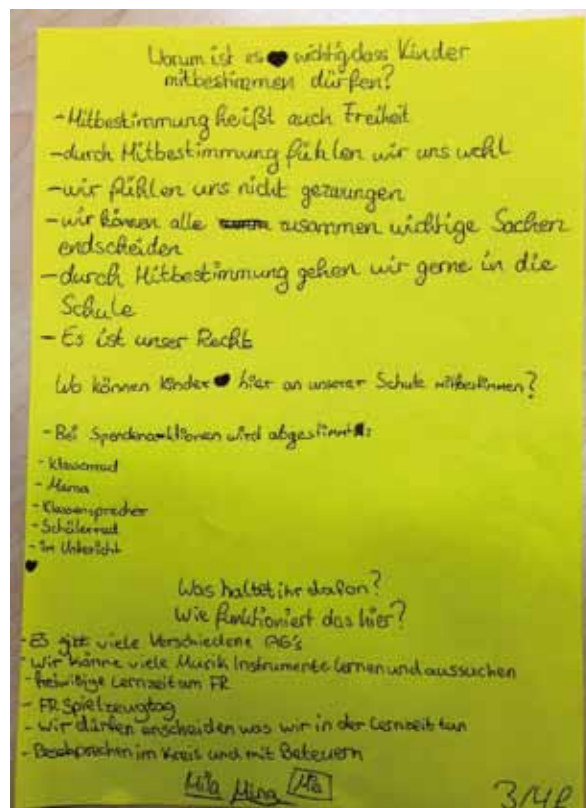 Warum ist es wichtig dass Kinder
mitbestimmen dürfen?
- Mitbestimmung heißt auch Freiheit
- durch Mitbestimmung fühlen wir uns wohl
- wir fühlen uns nicht gezwungen
- wir können alle zusammen wichtige Sachen
endscheiden
- durch Mitbestimmung gehen wir gerne in die
Schule
- Es ist unser Recht
Wo können Kinder hier an unserer Schule mitbestimmen?
- Bei Spendenaktionen wird abgestimmt
- Klassenrad
- Mensa
- Klassensprecher
- Schülerrad
- im Unterricht
Was haltet ihr dafon?
Wie funktioniert das hier?
- Es gibt viele Verschiedene AG's
- Wir könne viele Musik Instrumente lernen und aussuchen
- freiwilige Lernzeit am FR
- FR Spielzeugtag
- wir dürfen enscheiden was wir in der Lernzeit tun
- im Kreis und mit Beteuern
Mila Mina Mia